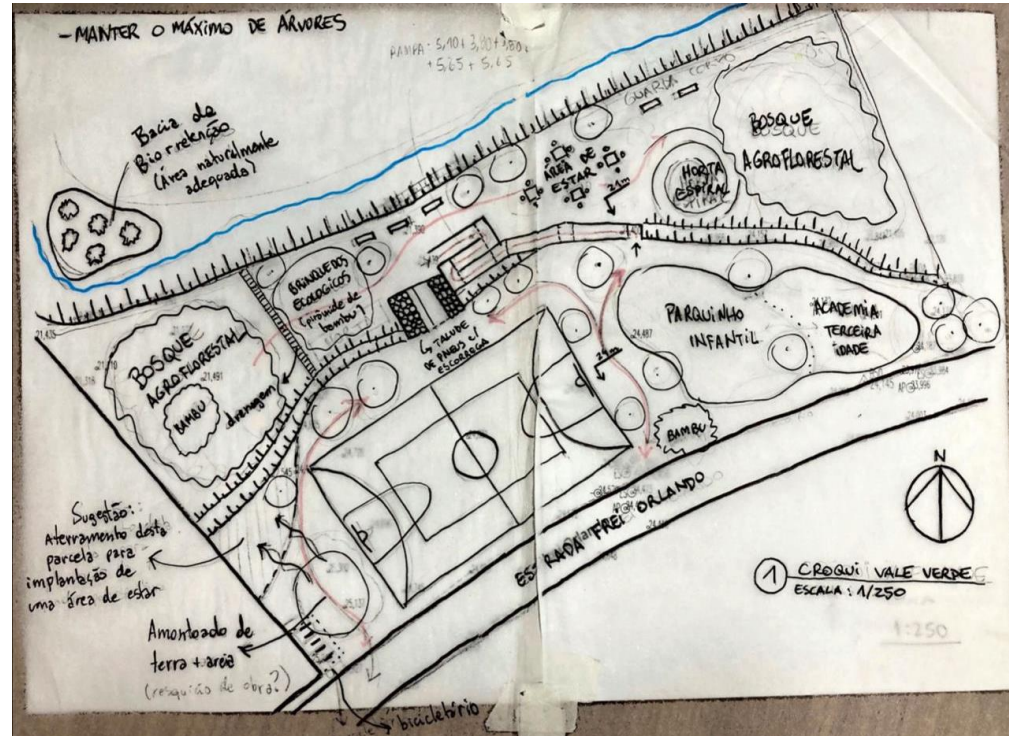 - MANTER O MÁXIMO DE ÁRVORES
RAMPA: 5,40 + 3,80 + 3,80 +
+ 5,65 + 5,65
GUARDA CORPO
Bacia de
Biorretenção
(Área naturalmente
adequada)
BOSQUE
AGROFLORESTAL
ÁREA DE
ESTAR
21m
HORTA
ESPIRAL
BRINQUEDOS
ECOLÓGICOS
(pirâmide de
bambu)
↳ TALUDE
DE PNEUS C/
ESCORREGA
PARQUINHO
INFANTIL
ACADEMIA
TERCEIRA
IDADE
24,487
24m
BOSQUE
AGROFLORESTAL
21,491
BAMBU
drenagem
BAMBU
ESTRADA FREI ORLANDO
Sugestão:
Aterramento desta
parcela para
implantação de
uma área de estar
25,137
Amontoado de
terra + areia
(resquício de obra?)
bicicletário
N
1 CROQUI VALE VERDE
ESCALA: 1/250
1:250